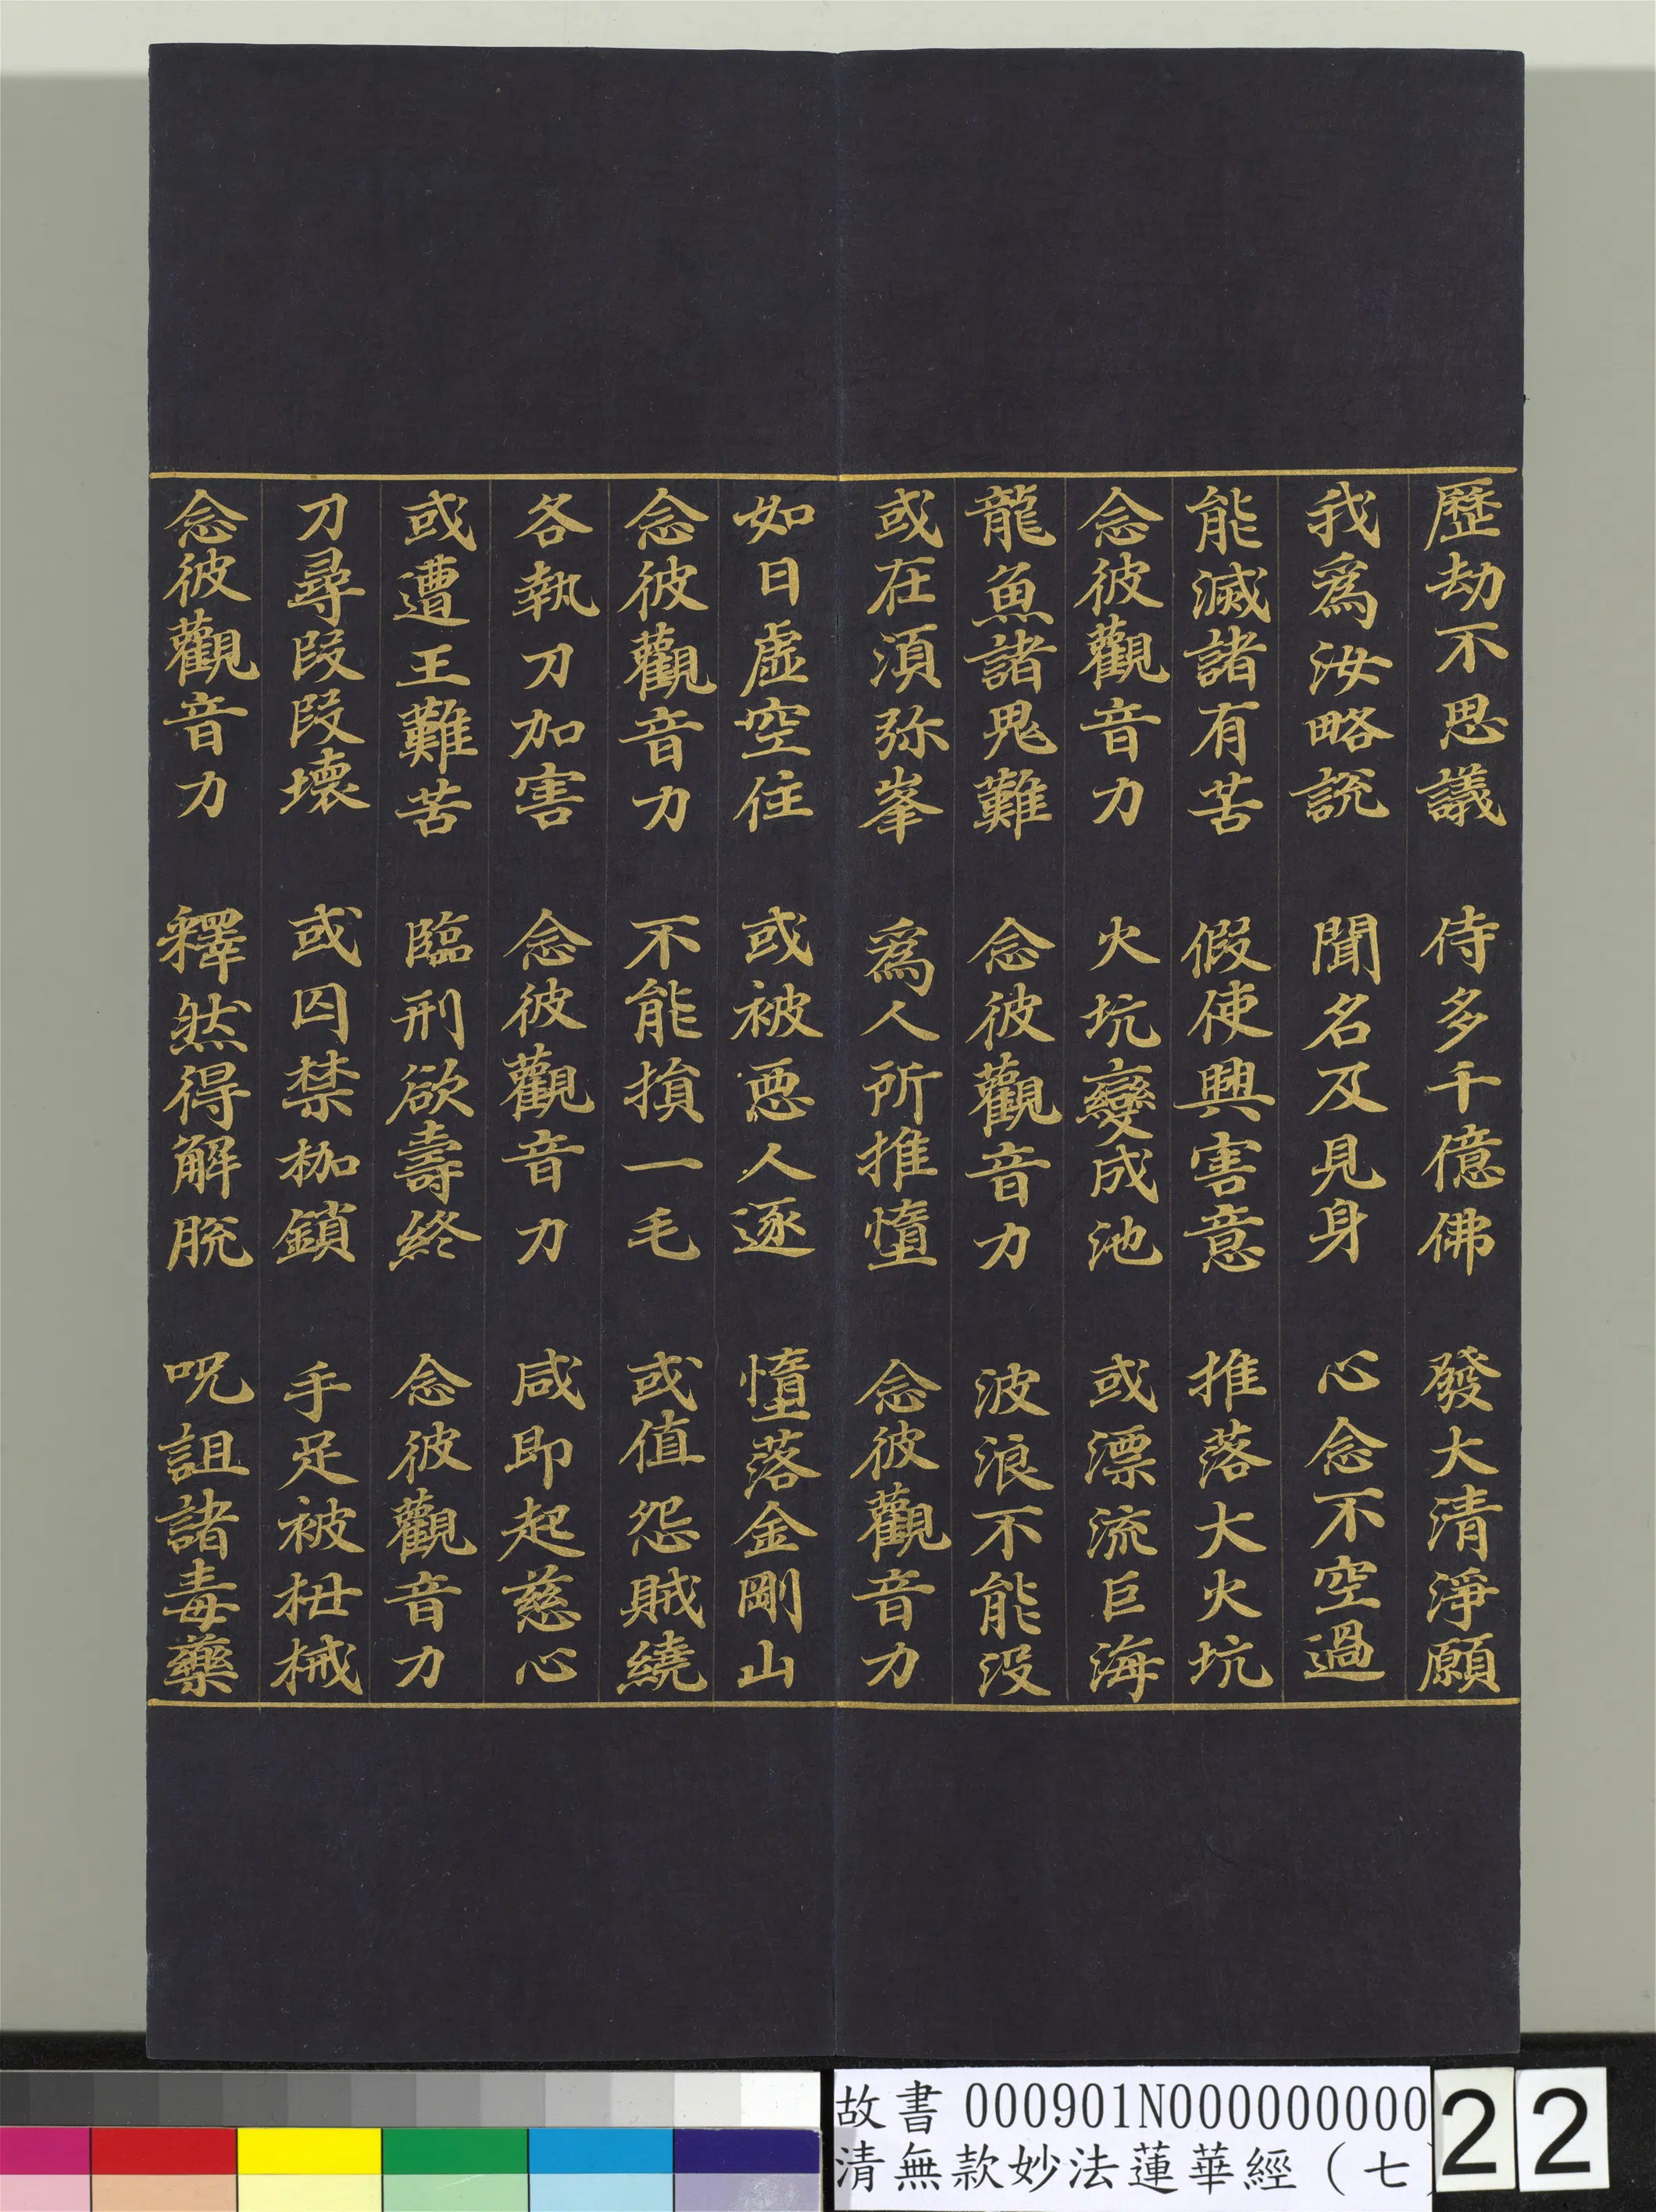 歷劫不思議　侍多千億佛　發大清淨願
我爲汝略說　聞名及見身　心念不空過
能滅諸有苦　假使興害意　推落大火坑
念彼觀音力　火坑變成池　或漂流巨海
龍魚諸鬼難　念彼觀音力　波浪不能沒
或在須弥峯　爲人所推墮　念彼觀音力
如日虛空住　或被惡人逐　墮落金剛山
念彼觀音力　不能損一毛　或值怨賊繞
各執刀加害　念彼觀音力　咸即起慈心
或遭王難苦　臨刑欲壽終　念彼觀音力
刀尋段段壞　或囚禁枷鎖　手足被杻械
念彼觀音力　釋然得解脫　呪詛諸毒藥
故書 000901N000000000
清無款妙法蓮華經（七
22